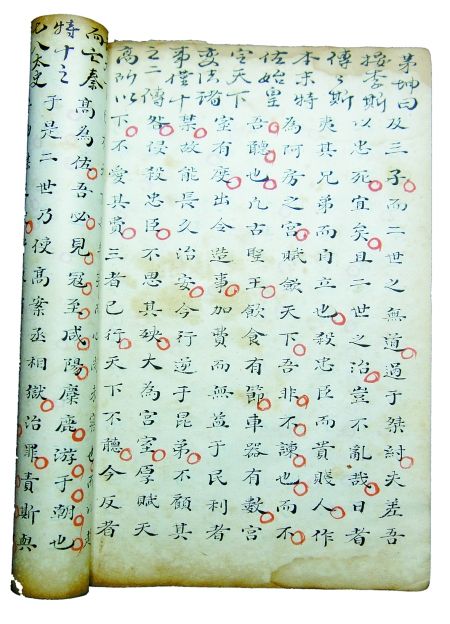 茅坤曰
按李斯
傳々斯
本末特
佐始皇
定天下
變法諸
事僅十
之二傳
高所以
而亡秦
特十之
八太史
及三子而二世之無道過于桀紂夫差吾
以忠死宜矣且二世之治豈不亂哉日者
夷其兄弟而自立也殺忠臣而貴賤人作
為阿房之宮賦斂天下吾非不諫也而不
吾聽也凡古聖王飲食有節車器有數宮
室有度出令造事加費而無益于民利者
禁故能長久治安今行逆于昆弟不顧其
咎侵殺忠臣不思其殃大為宮室厚賦天
下不愛其費三者已行天下不聽今反者
高為佐吾必見寇至咸陽麋鹿游于朝也
于是二世乃使高案丞相獄治罪責斯與